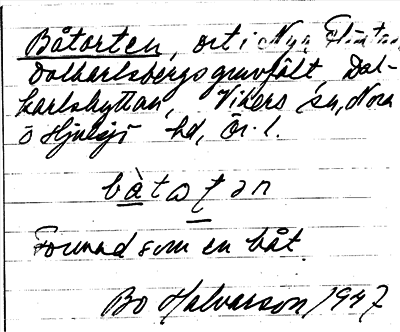 Båtorten, ort i Nya
Dalkarlsbergs gruvfält, Dal-
karlshyttan, Vikers sn, Nora
o Hjulsjö hd, Ör. l.
bàtoṭən
Formad som en båt
Bo Halvarson 1947